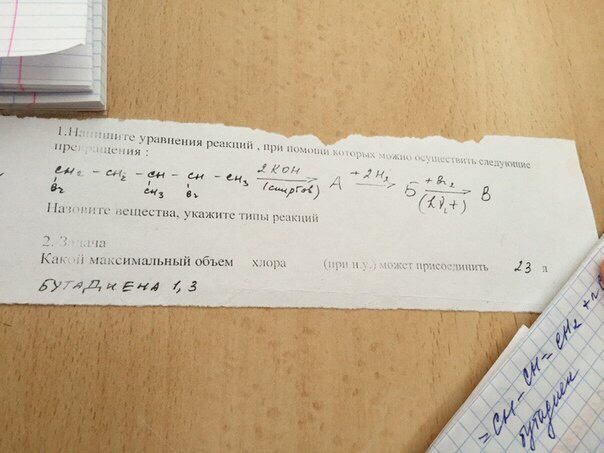 1.Напишите уравнения реакций , при помощи которых можно осуществить следующие
превращения :
CH2 - CH2 - CH - CH - CH3 2KOH (спиртов) → A +2H2 → Б +Br2 (hν, t) → В
Br CH3 Br
Назовите вещества, укажите типы реакций
2. Задача
Какой максимальный объем хлора (при н.у.) может присоединить 23 л
БУТАДИЕНА 1,3
= CH - CH = CH2 +
бутадиен